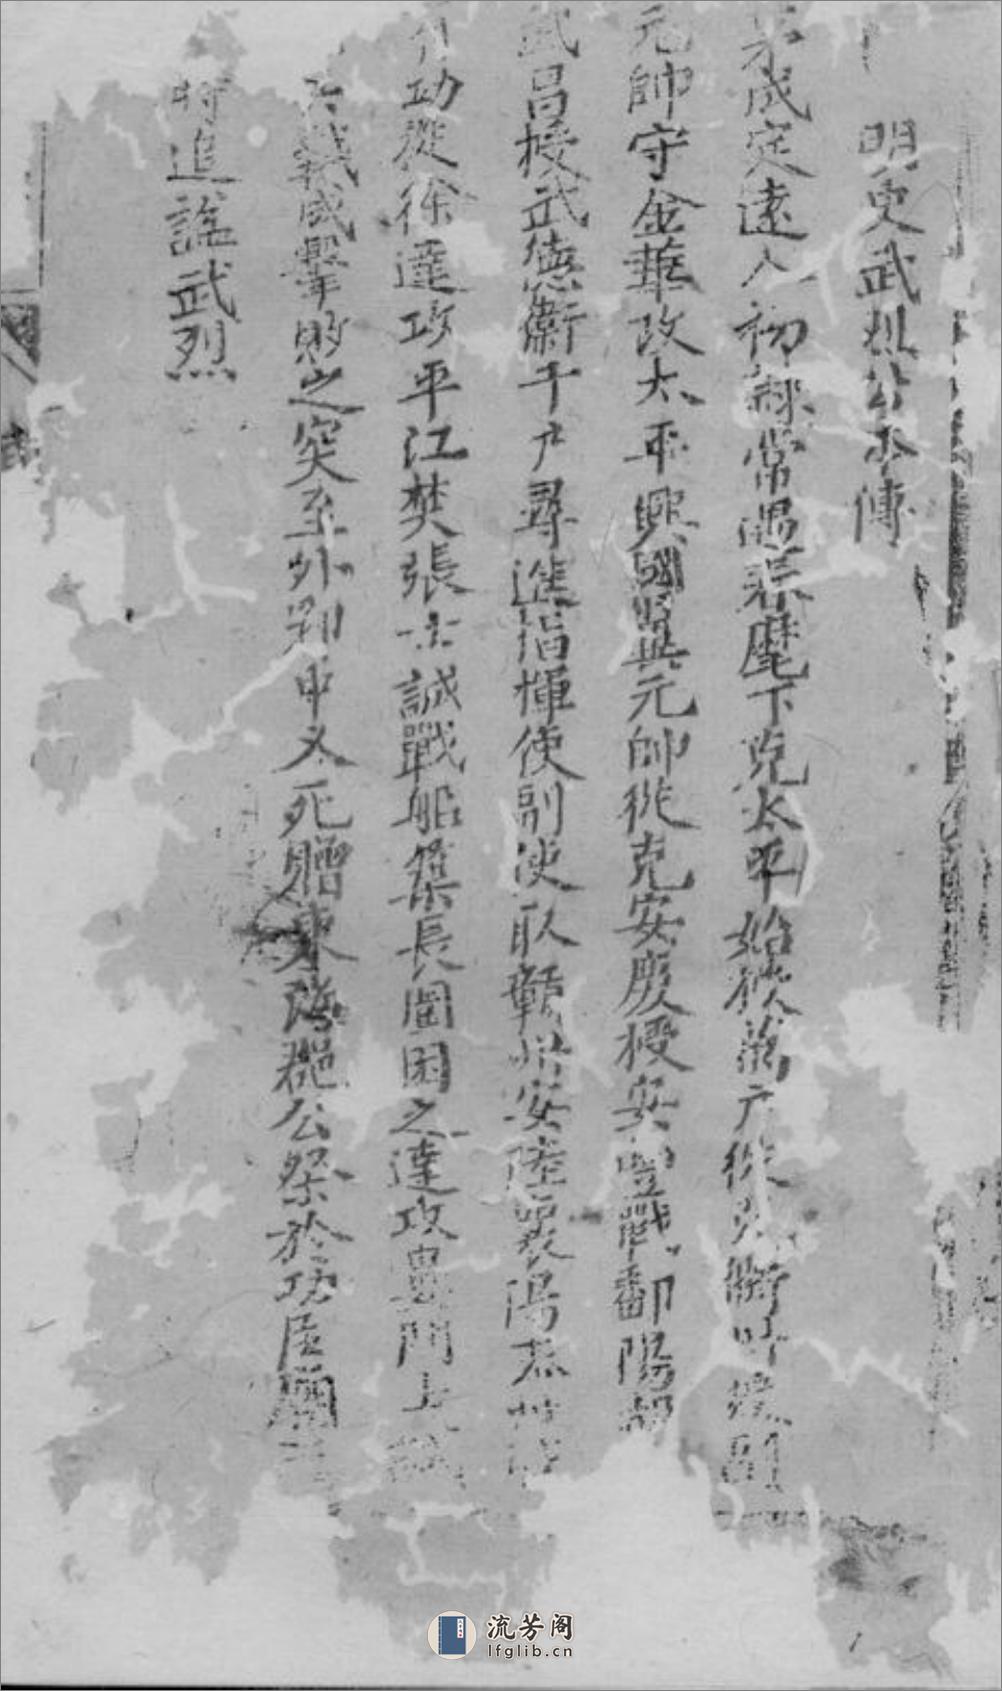 明史武烈公本傳
茅成定遠人初隸常遇春麾下克太平始授萬户從
元帥守金華改太平興國翼元帥從克安慶授安豐戰鄱陽
武昌授武德衛千户尋進指揮使副使取贛州安陸襄陽
功從徐達攻平江焚張士誠戰船築長圍困之達攻婁門士誠
戰成擊敗之突至外郛中叉死贈東海郡公祭於功臣廟
進諡武烈
流芳阁
lfglib.cn